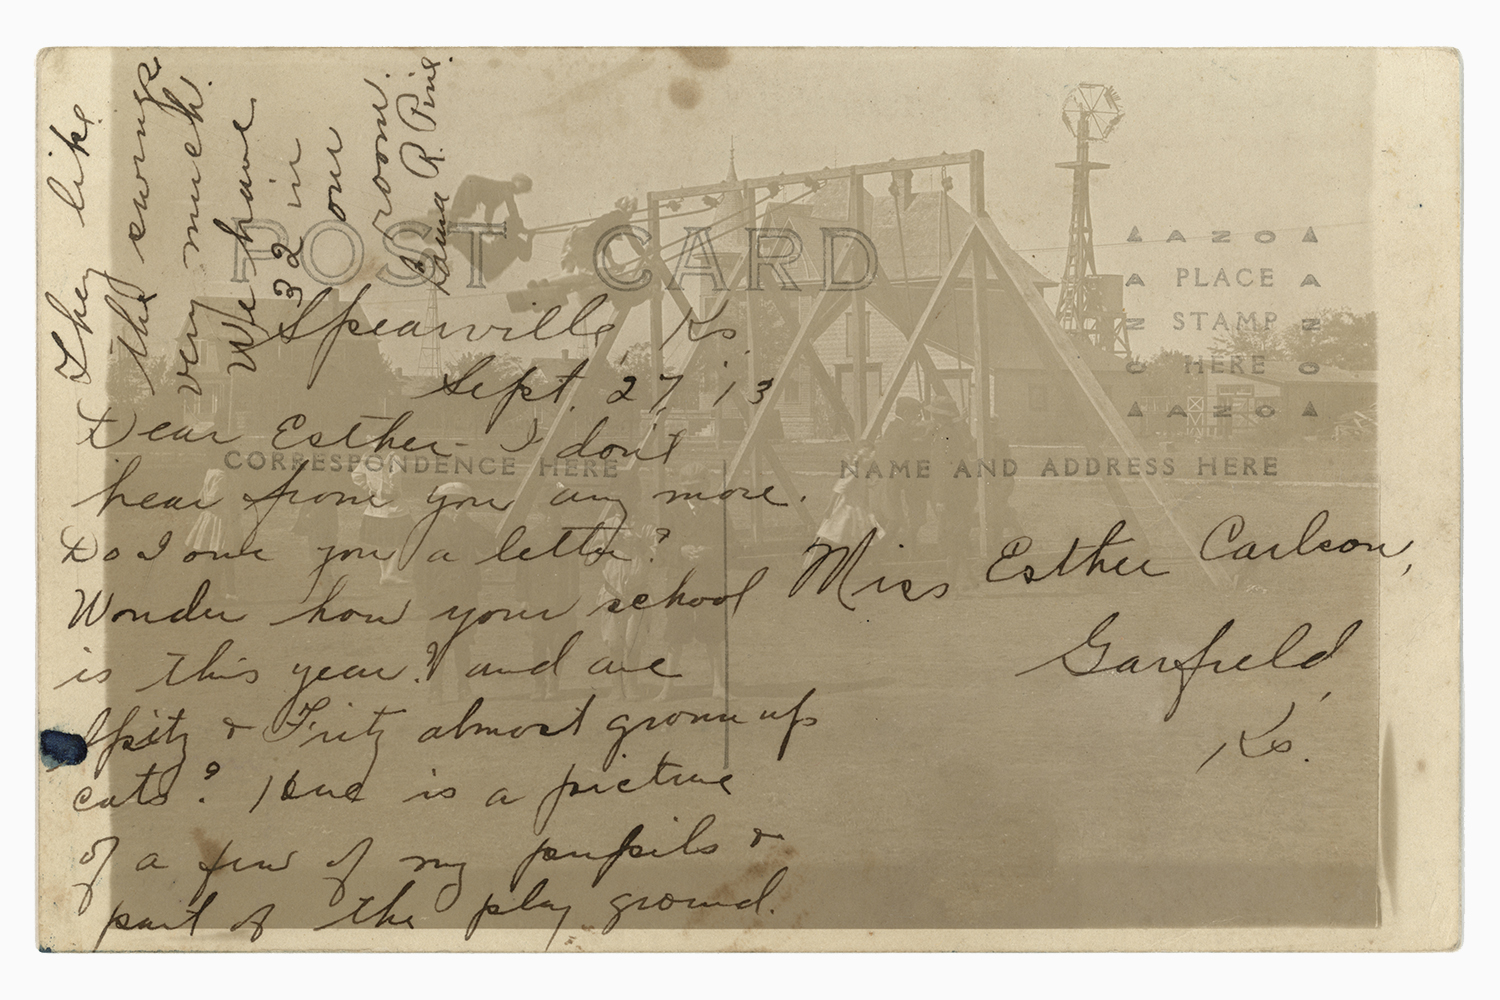 POST CARD
Spearville, Ks.
Sept. 27, '13
Dear Esther - I don't
hear from you any more.
Do I owe you a letter?
Wonder how your school
is this year? and are
Spitz & Fritz almost grown up
cats? Here is a picture
of a few of my pupils &
part of the play ground.
They like
the swings
very much.
We have
32 in
our
room.
R. Pine.
CORRESPONDENCE HERE
NAME AND ADDRESS HERE
AZO
PLACE
STAMP
HERE
AZO
AZO
AZO
Miss Esther Carlson,
Garfield,
Ks.